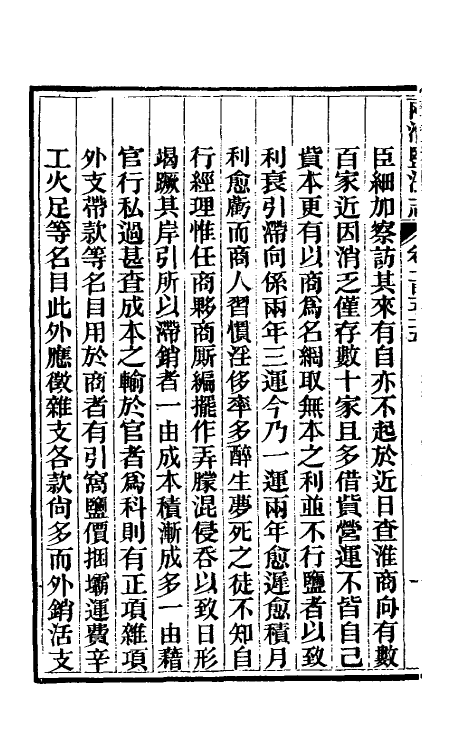 兩淮鹽法志 卷一百五十五
臣細加察訪其來有自亦不起於近日查淮商向有數
百家近因消乏僅存數十家且多借貲營運不皆自己
貲本更有以商為名網取無本之利並不行鹽者以致
利衰引滯向係兩年三運今乃一運兩年愈遲愈積月
利愈虧而商人習慣淫侈率多醉生夢死之徒不知自
行經理惟任商夥商厮編擺作弄朦混侵吞以致日形
竭蹶其岸引所以滯銷者一由成本積漸成多一由藉
官行私過甚查成本之輸於官者為科則有正項雜項
外支帶款等名目用於商者有引窩鹽價捆壩運費辛
工火足等名目此外應徵雜支各款尙多而外銷活支